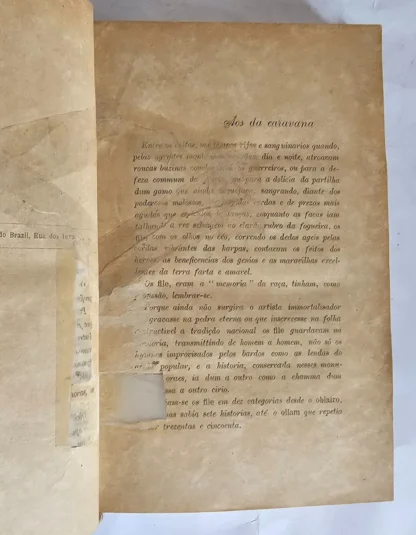 do Brazil, Rua dos
Aos da caravana
Entre os celtas, e sanguinarios quando,
pelas dia e noite, atroavam
roucas buzinas guerreiros, ou para a de-
feza commum ou para a delicia da partilha
dum gamo que ainda sangrando, diante dos
poderosos e de prezas mais
agudas que emquanto as facas iam
talhando a rez rubro da fogueira, os
file com os olhos no céo, correndo os dedos ageis pelas
cordas vibrantes das harpas, contavam os feitos dos
heroes, as beneficencias dos genios e as maravilhas excel-
lentes da terra farta e amavel.
Os file, eram a "memoria" da raça, tinham, como
missão, lembrar-se.
Porque ainda não surgira o artista immortalisador
que gravasse na pedra eterna ou que inscrevesse na folha
a tradição nacional os file guardavam na
memoria, transmittindo de homem a homem, não só os
hymnos improvisados pelos bardos como as lendas do
popular, e a historia, conservada nesses monu-
ia dum a outro como a chamma dum
a outro cirio.
os file em dez categorias desde o oblairo,
sabia sete historias, até o ollam que repetia
trezentas e cincoenta.